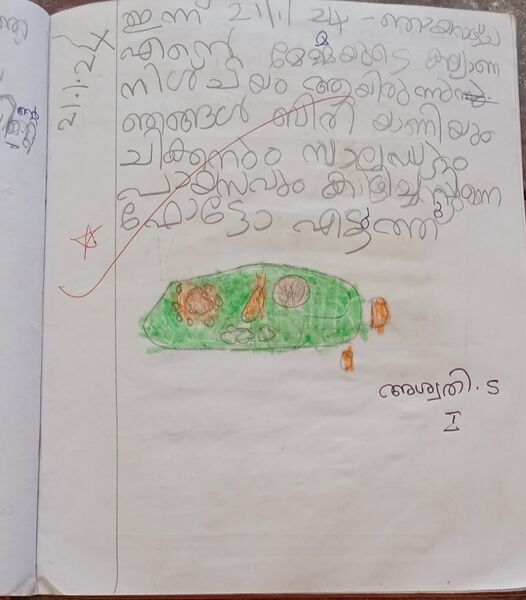 21.1.24
ഇന്ന് 21/1/24 - ഞായറാഴ്ച
എൻ്റെ മേമ്മയുടെ കല്യാണ
നിശ്ചയം ആയിരുന്നു
ഞങ്ങൾ ബിരിയാണിയും
ചിക്കനും സാലഡും
പായസവും കുടിച്ചു പിന്നെ
ഫോട്ടോ എടുത്തു
അശ്വതി. S
I